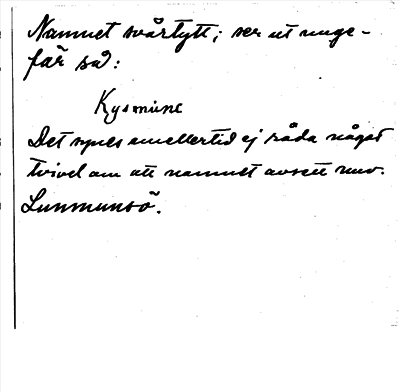 Namnet svårtytt; ser ut unge-
fär så:
Kysmüne
Det synes emellertid ej råda något
tvivel om att namnet avsett nuv.
Lunmunsö.